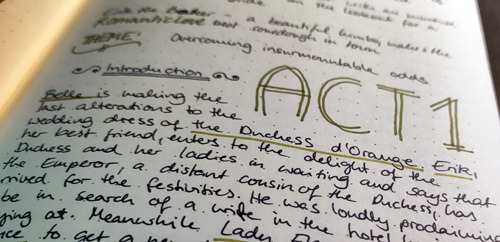 a beautiful makes the
Romantic best in town.
THEME: Overcoming insurmountable odds
Introduction
ACT 1
Belle is making the
last alterations to the
wedding dress of the Duchess d'Orange. Erik,
her best friend, enters to the delight of the
Duchess and her ladies in waiting and says that
the Emperor, a distant cousin of the Duchess, has
rrived for the festivities. He was loudly proclaiming
be in search of a wife in the hotel
ging at. Meanwhile Lady
ce to get a